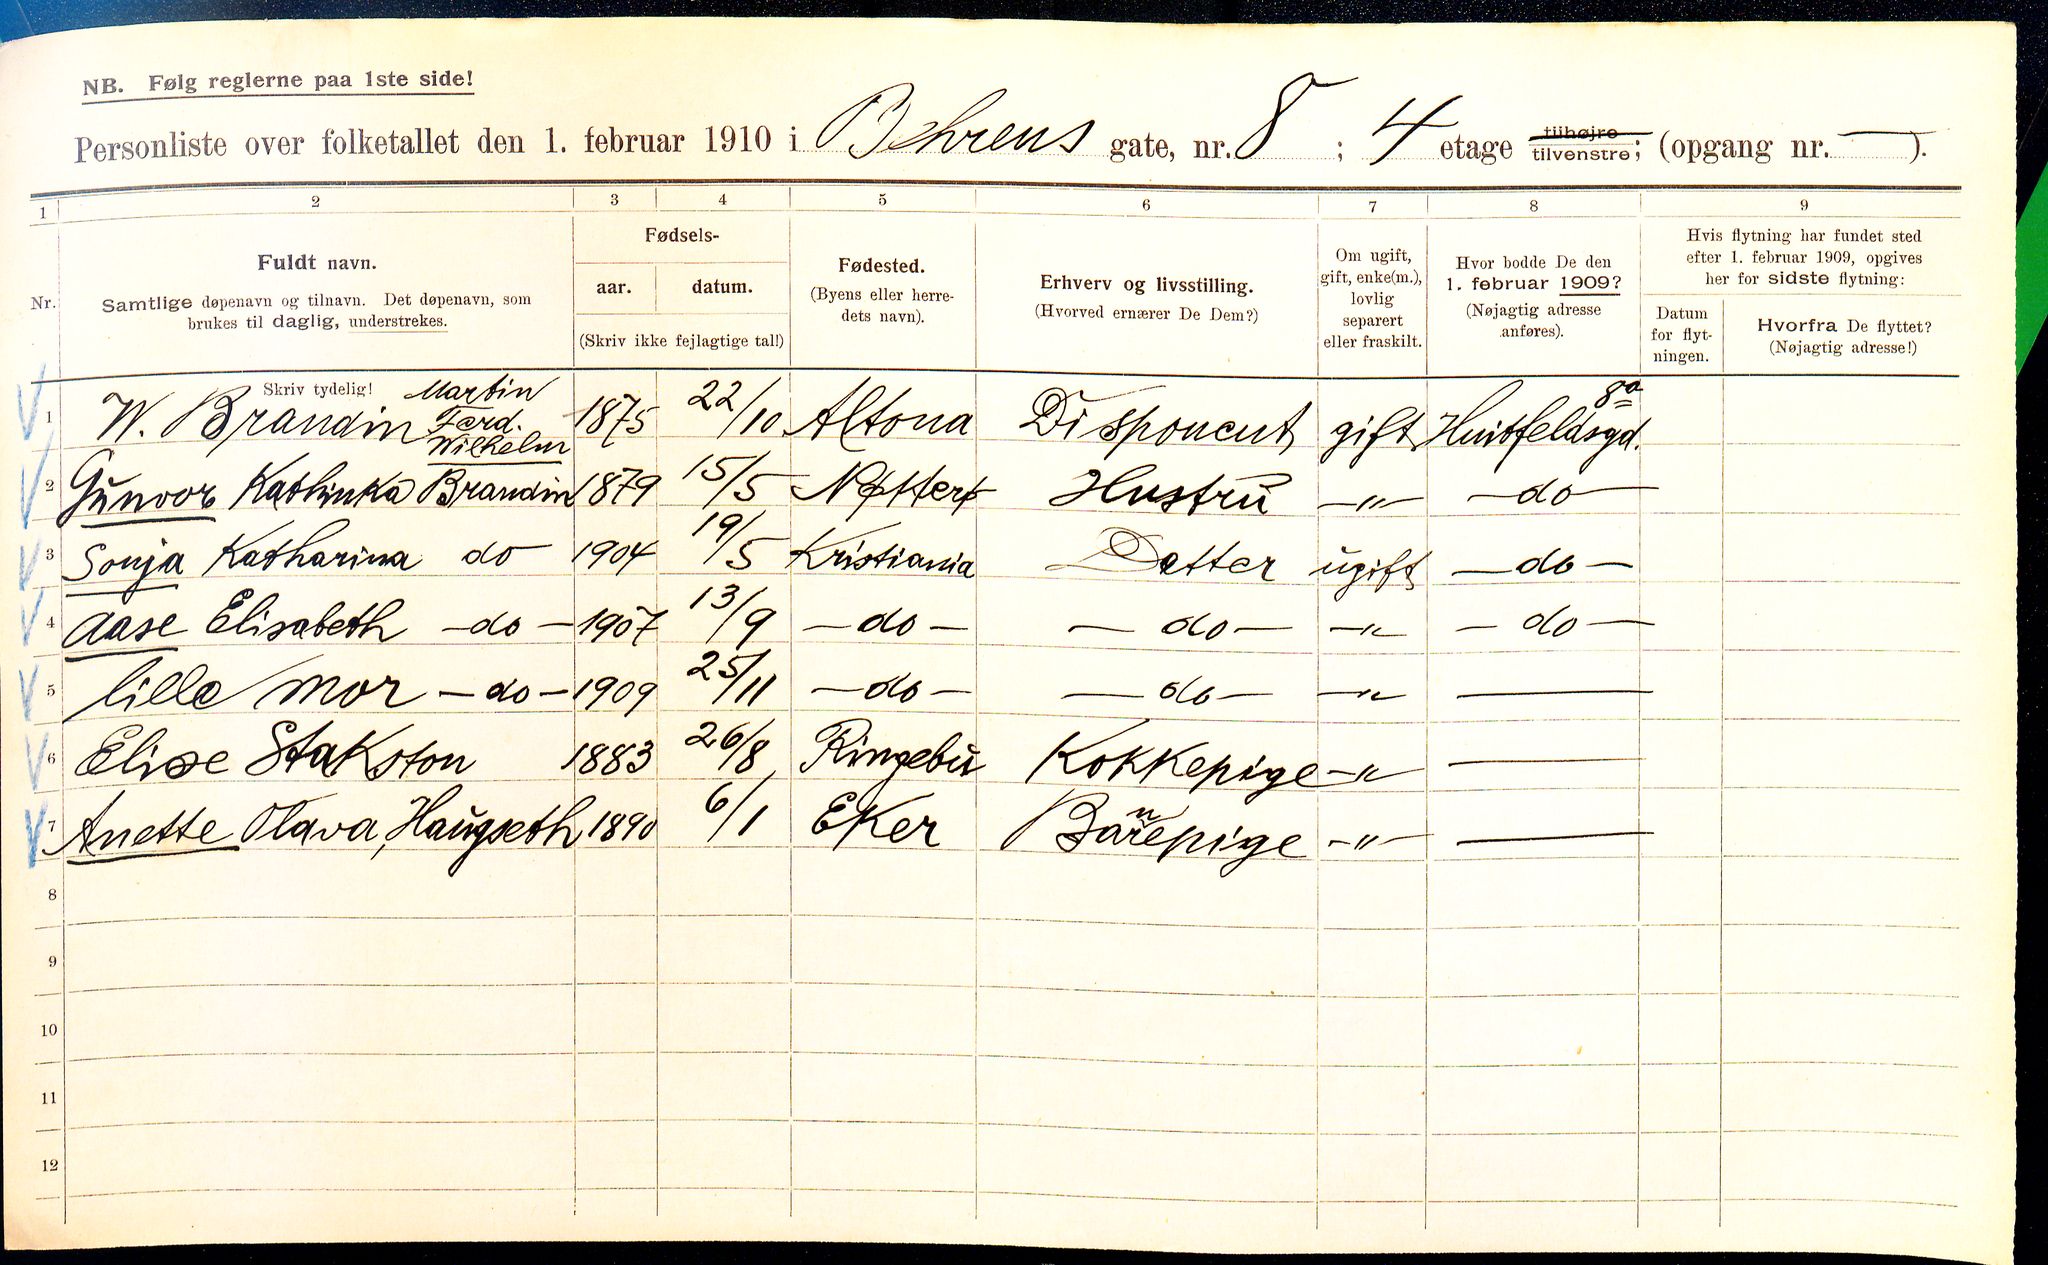 NB. Følg reglerne paa 1ste side!
Personliste over folketallet den 1. februar 1910 i Behrens gate, nr. 8 ; 4 etage tilhøjre tilvenstre; (opgang nr. — ).
1 2 3 4 5 6 7 8 9
Nr. Fuldt navn. Samtlige døpenavn og tilnavn. Det døpenavn, som brukes til daglig, understrekes.
Fødsels- aar. datum. (Skriv ikke fejlagtige tal!)
Fødested. (Byens eller herredets navn).
Erhverv og livsstilling. (Hvorved ernærer De Dem?)
Om ugift, gift, enke(m.), lovlig separert eller fraskilt.
Hvor bodde De den 1. februar 1909? (Nøjagtig adresse anføres).
Hvis flytning har fundet sted efter 1. februar 1909, opgives her for sidste flytning:
Datum for flytningen. Hvorfra De flyttet? (Nøjagtig adresse!)
Skriv tydelig!
1 W. Brandin Martin Ferd. Wilhelm 1875 22/10 Altona Disponent gift Huitfeldsgd. 8a
2 Gunvor Kathinka Brandin 1879 15/5 Nøtterø Hustru —"— —do—
3 Sonja Katharina do 1904 19/5 Kristiania Datter ugift —do—
4 Aase Elisabeth —do— 1907 13/9 —do— —do— —"— —do—
5 lille mor —do— 1909 25/11 —do— —do— —"— ——
6 Elise Stakston 1883 26/8 Ringebu Kokkepige —"— ——
7 Anette Olava, Haugseth 1890 6/1 Eker Barnepige —"— ——
8
9
10
11
12